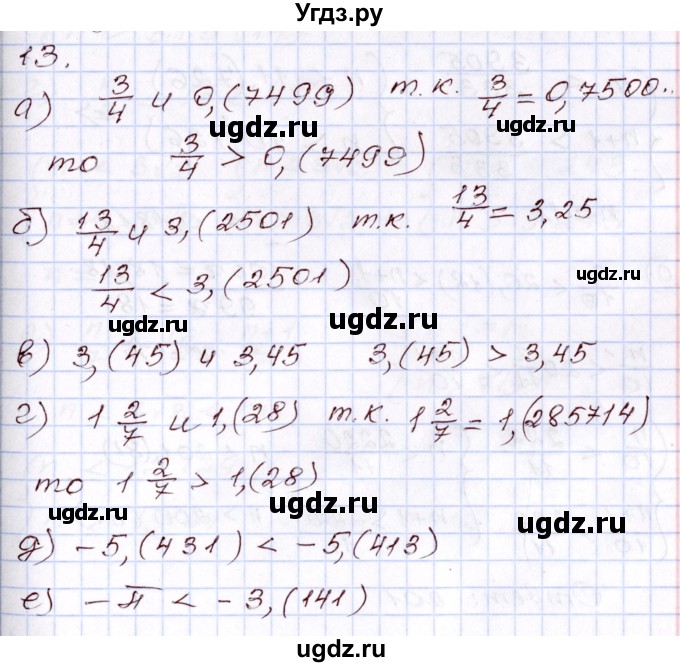 Угдз.ру
13.
а) 3/4 и 0,(7499) т.к. 3/4 = 0,7500..
ugdz.ru
то 3/4 > 0,(7499)
ugdz.ru
б) 13/4 и 3,(2501) т.к. 13/4 = 3,25
ugdz.ru
13/4 < 3,(2501)
ugdz.ru ugdz.ru
в) 3,(45) и 3,45 3,(45) > 3,45
г) 1 2/7 и 1,(28) т.к. 1 2/7 = 1,(285714)
ugdz.ru
то 1 2/7 > 1,(28)
ugdz.ru ugdz.ru
д) -5,(431) < -5,(413)
ugdz.ru
е) -π < -3,(141)
ugdz.ru